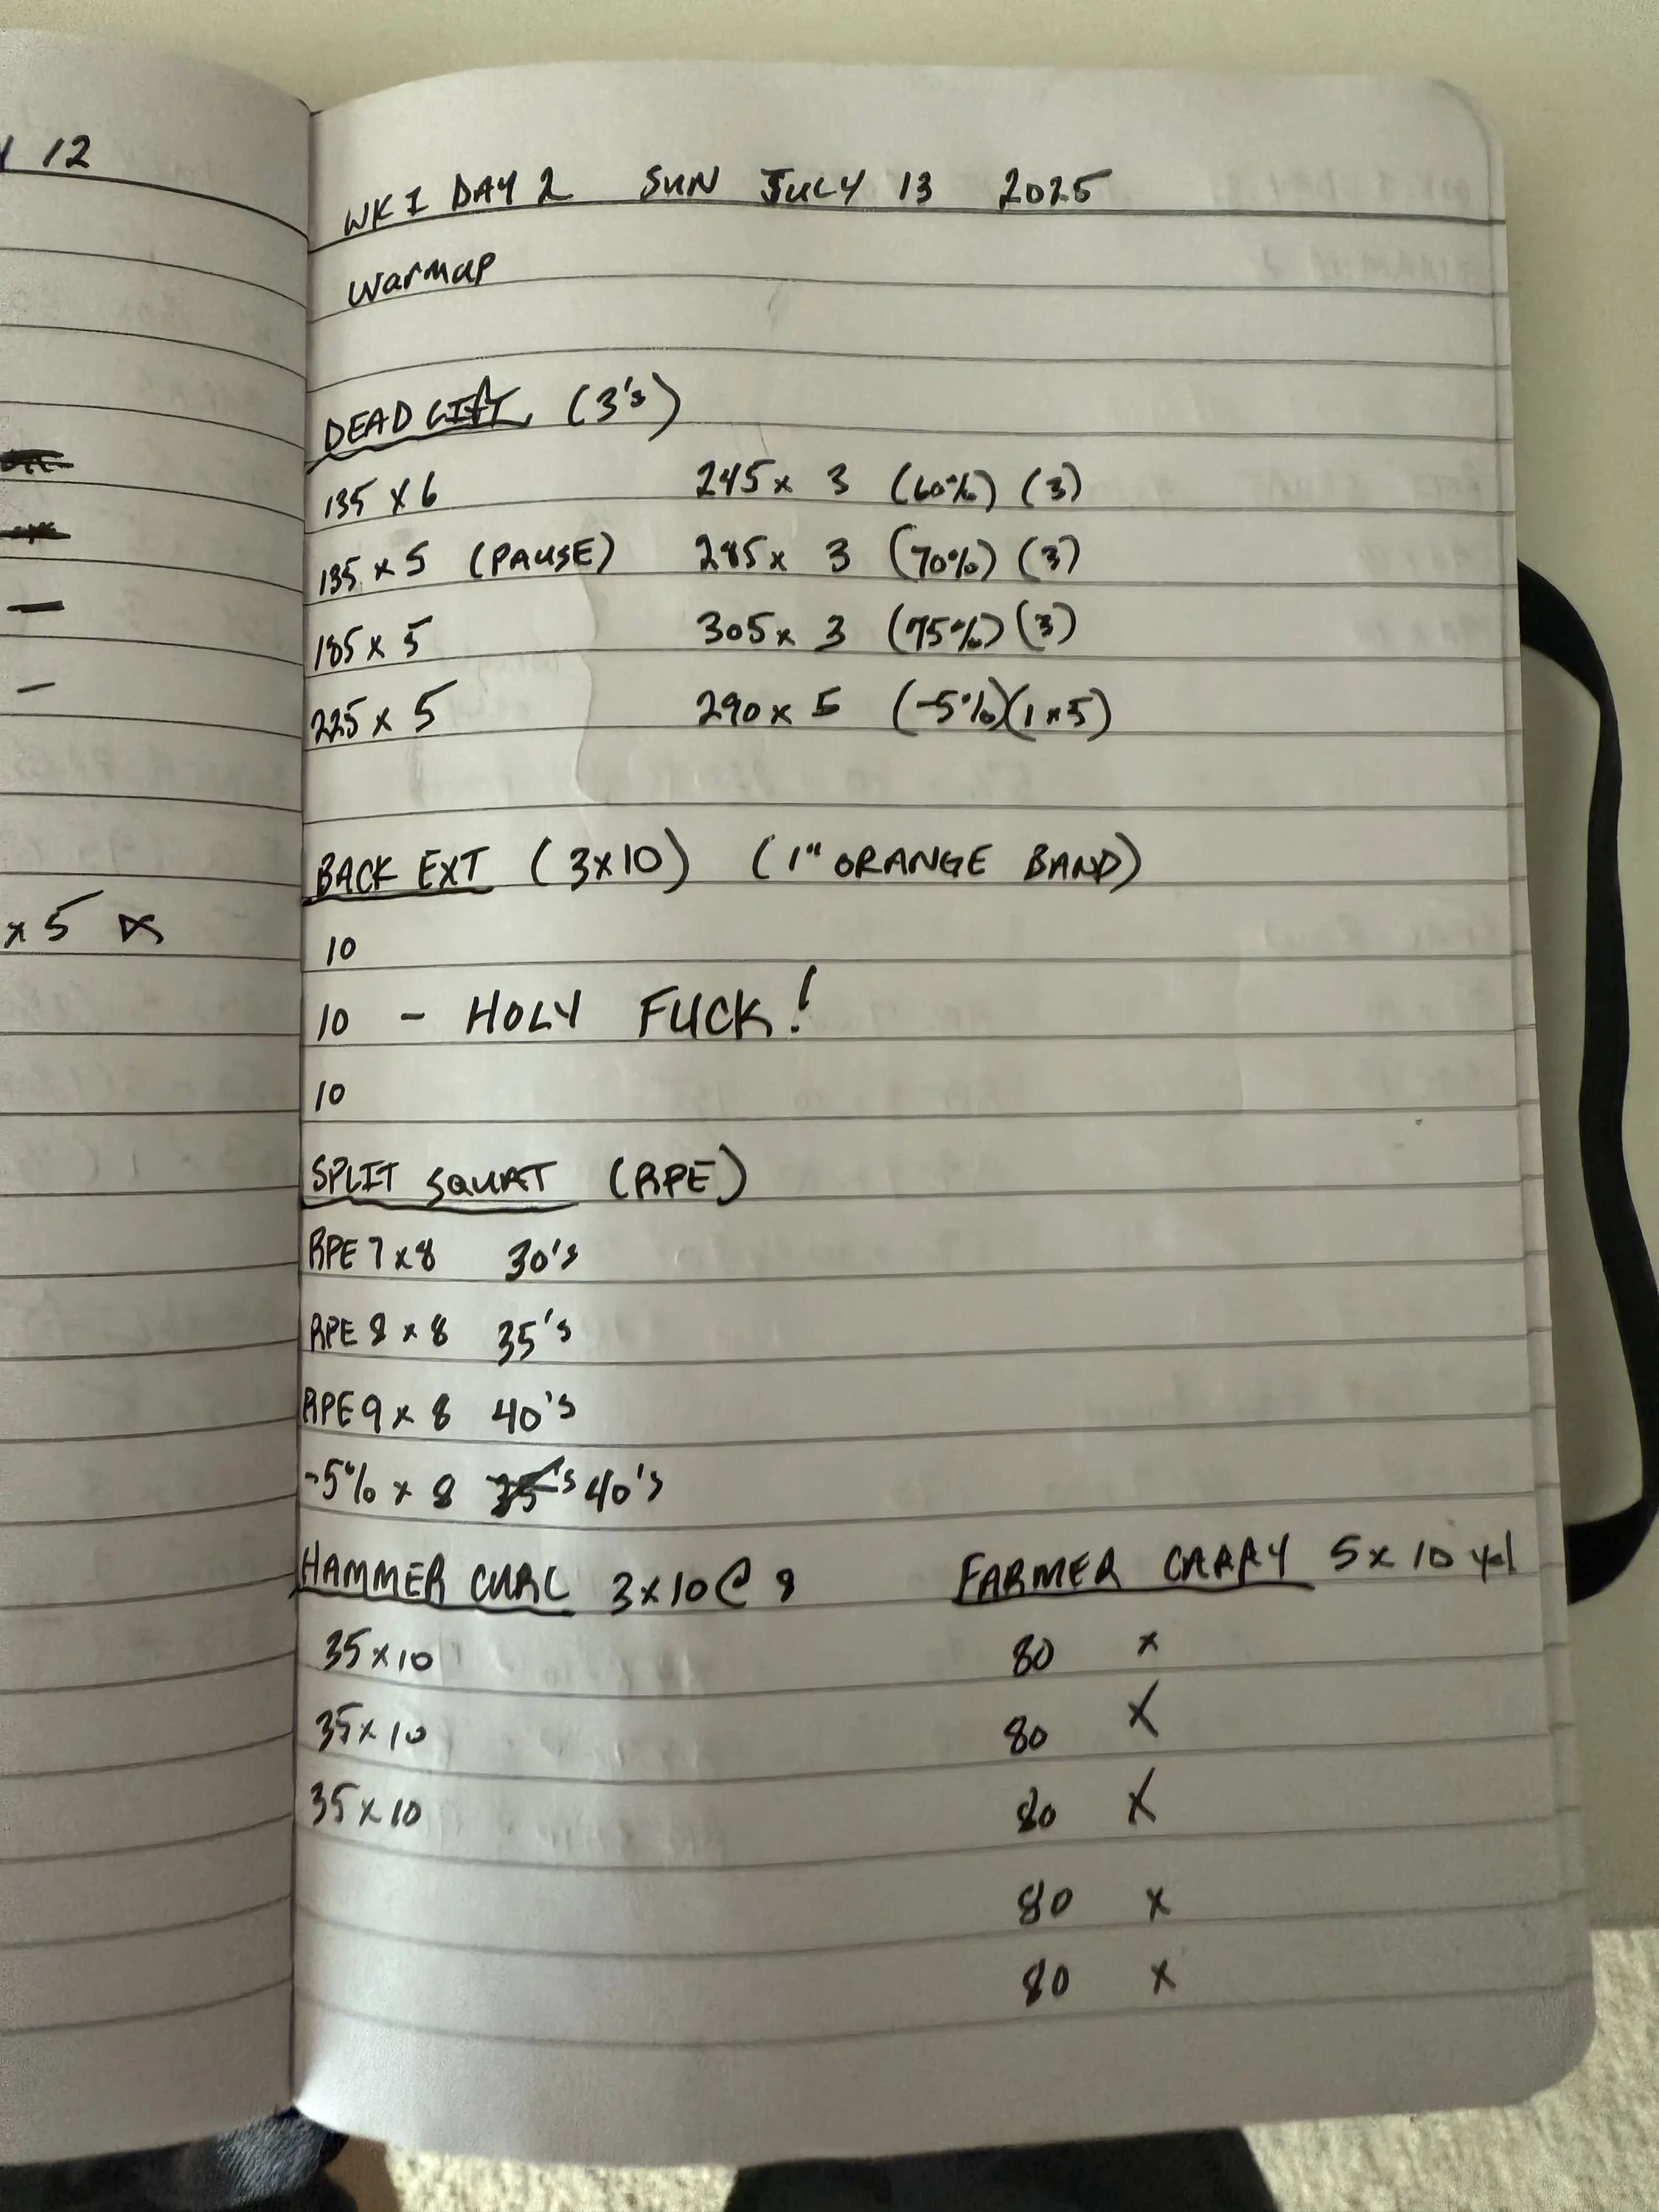 12
x 5
WK I DAY 2 SUN JULY 13 2025
warmup
DEADLIFT (3's)
135 x 6 245 x 3 (60%) (3)
135 x 5 (PAUSE) 285 x 3 (70%) (3)
185 x 5 305 x 3 (75%) (3)
225 x 5 290 x 5 (-5%) (1 x 5)
BACK EXT (3x10) (1" ORANGE BAND)
10
10 - HOLY FUCK!
10
SPLIT SQUAT (RPE)
RPE 7 x 8 30's
RPE 8 x 8 35's
RPE 9 x 8 40's
-5% x 8 35's 40's
HAMMER CURL 3x10 @ 8
35 x 10
35 x 10
35 x 10
FARMER CARRY 5 x 10 yd
80 x
80 x
80 x
80 x
80 x